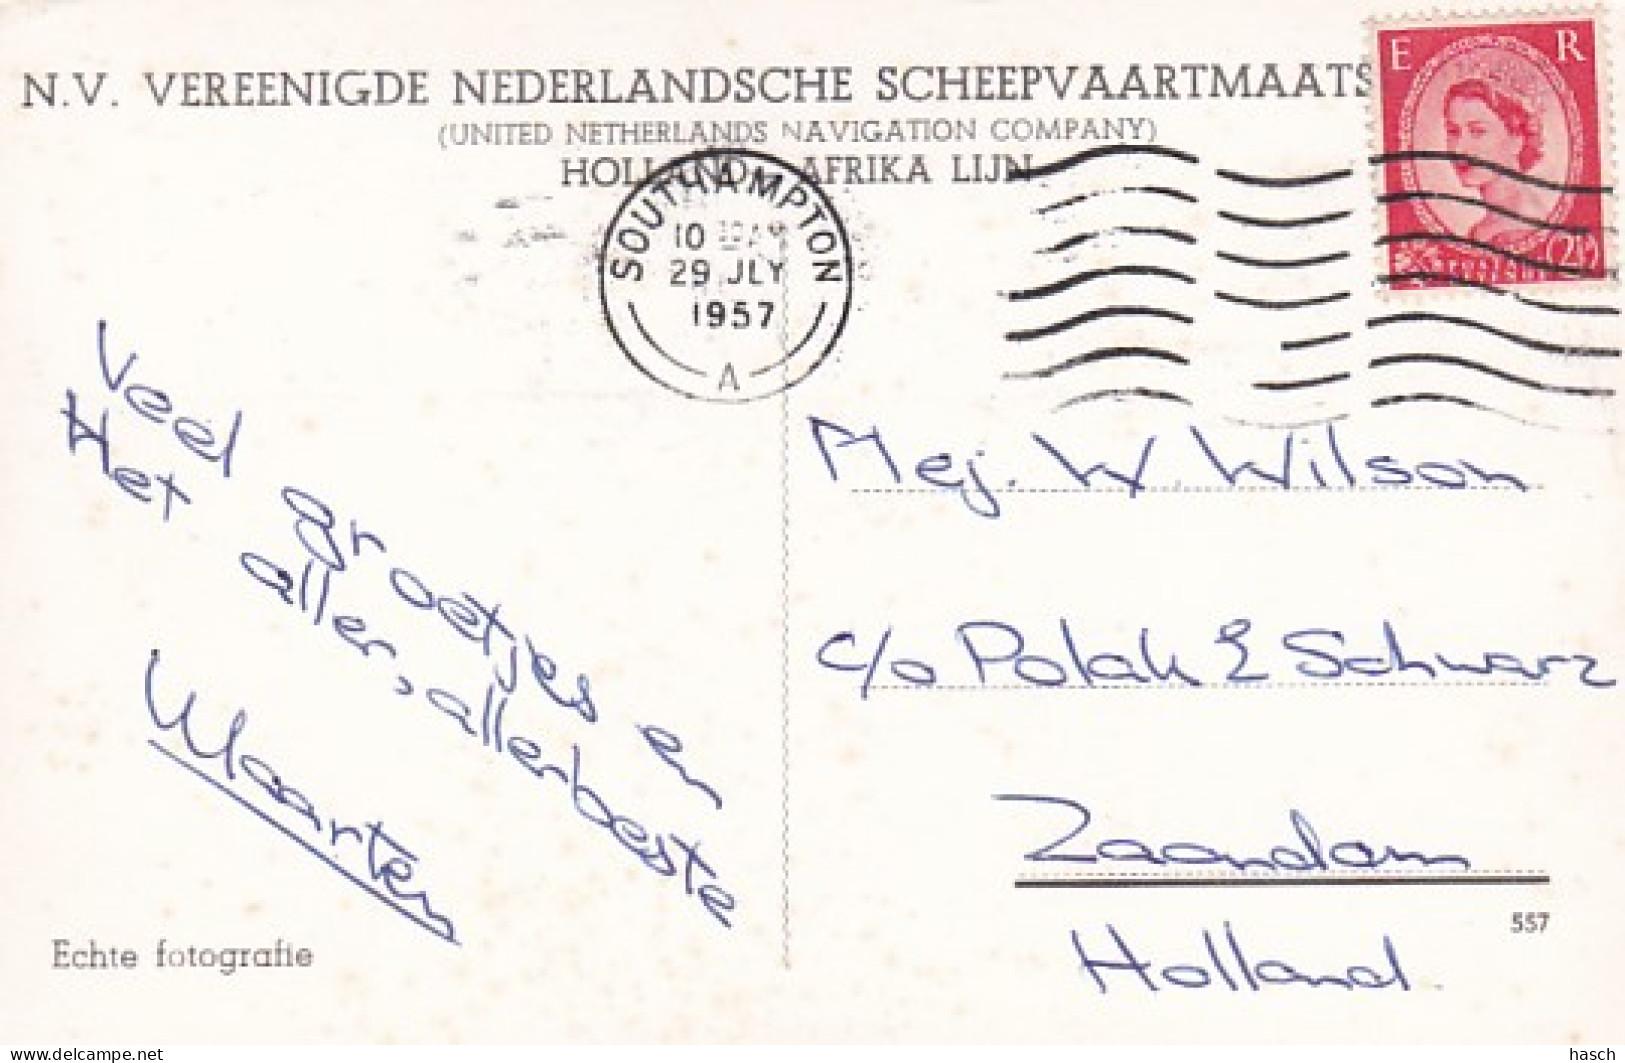 N.V. VEREENIGDE NEDERLANDSCHE SCHEEPVAARTMAATS
(UNITED NETHERLANDS NAVIGATION COMPANY)
HOLLAND AFRIKA LIJN
E R
SOUTHAMPTON
10 AM
29 JLY
1957
A
Veel groetjes en
Het aller, allerbeste
Maarten
Mej. W. Wilson
c/o Polak & Schwarz
Zaandam
Holland.
557
Echte fotografie
delcampe.net
hasch